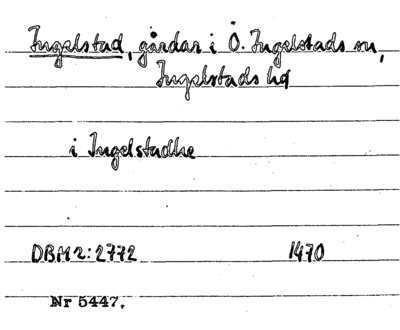 Ingelstad, gårdar i Ö. Ingelstads sn,
Ingelstads hd
i Ingelstadhe
DBM 2:2772 1470
Nr 5447.